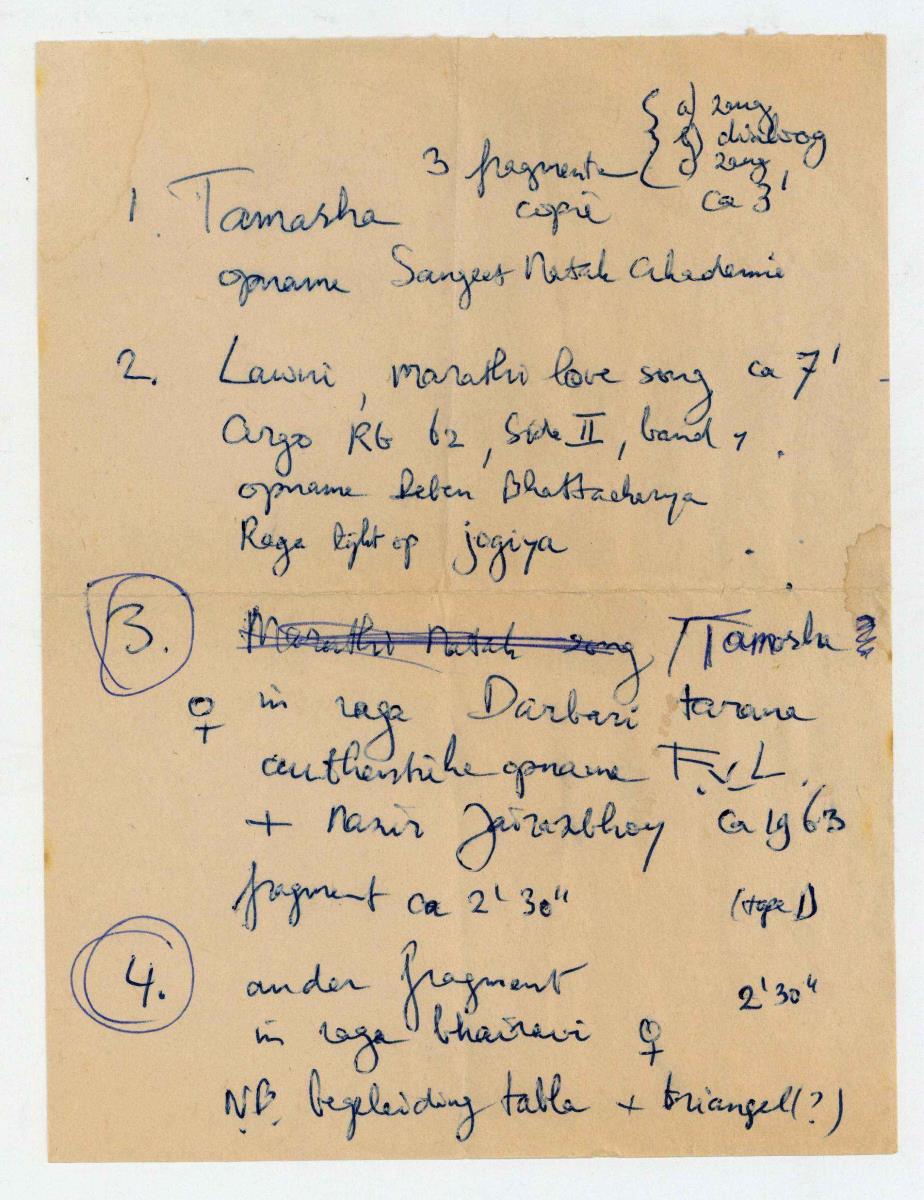 a) zang
b) dialoog
3 fragmenten c) zang
1. Tamasha copie ca 3'
opname Sangeet Natak Akademie
2. Lawni, marathi love song ca 7'
Argo RG 62, Side II, band 7.
opname Deben Bhattacharya
Raga light op jogiya
3. Marathi Natak song / Tamasha
♀ in raga Darbari tarana
authentieke opname F.v.L.
+ Nazir Jairazbhoy ca 1963
fragment ca 2'30" (tape 1)
4. ander fragment 2'30"
in raga bhairavi ♀
N.B. begeleiding tabla + triangel(?)